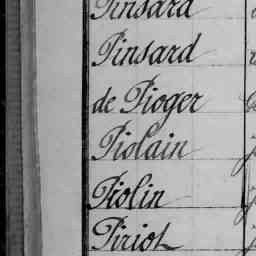 Pinsard
Pinsard
de Pioger
Piolain
Piolin
Piriot